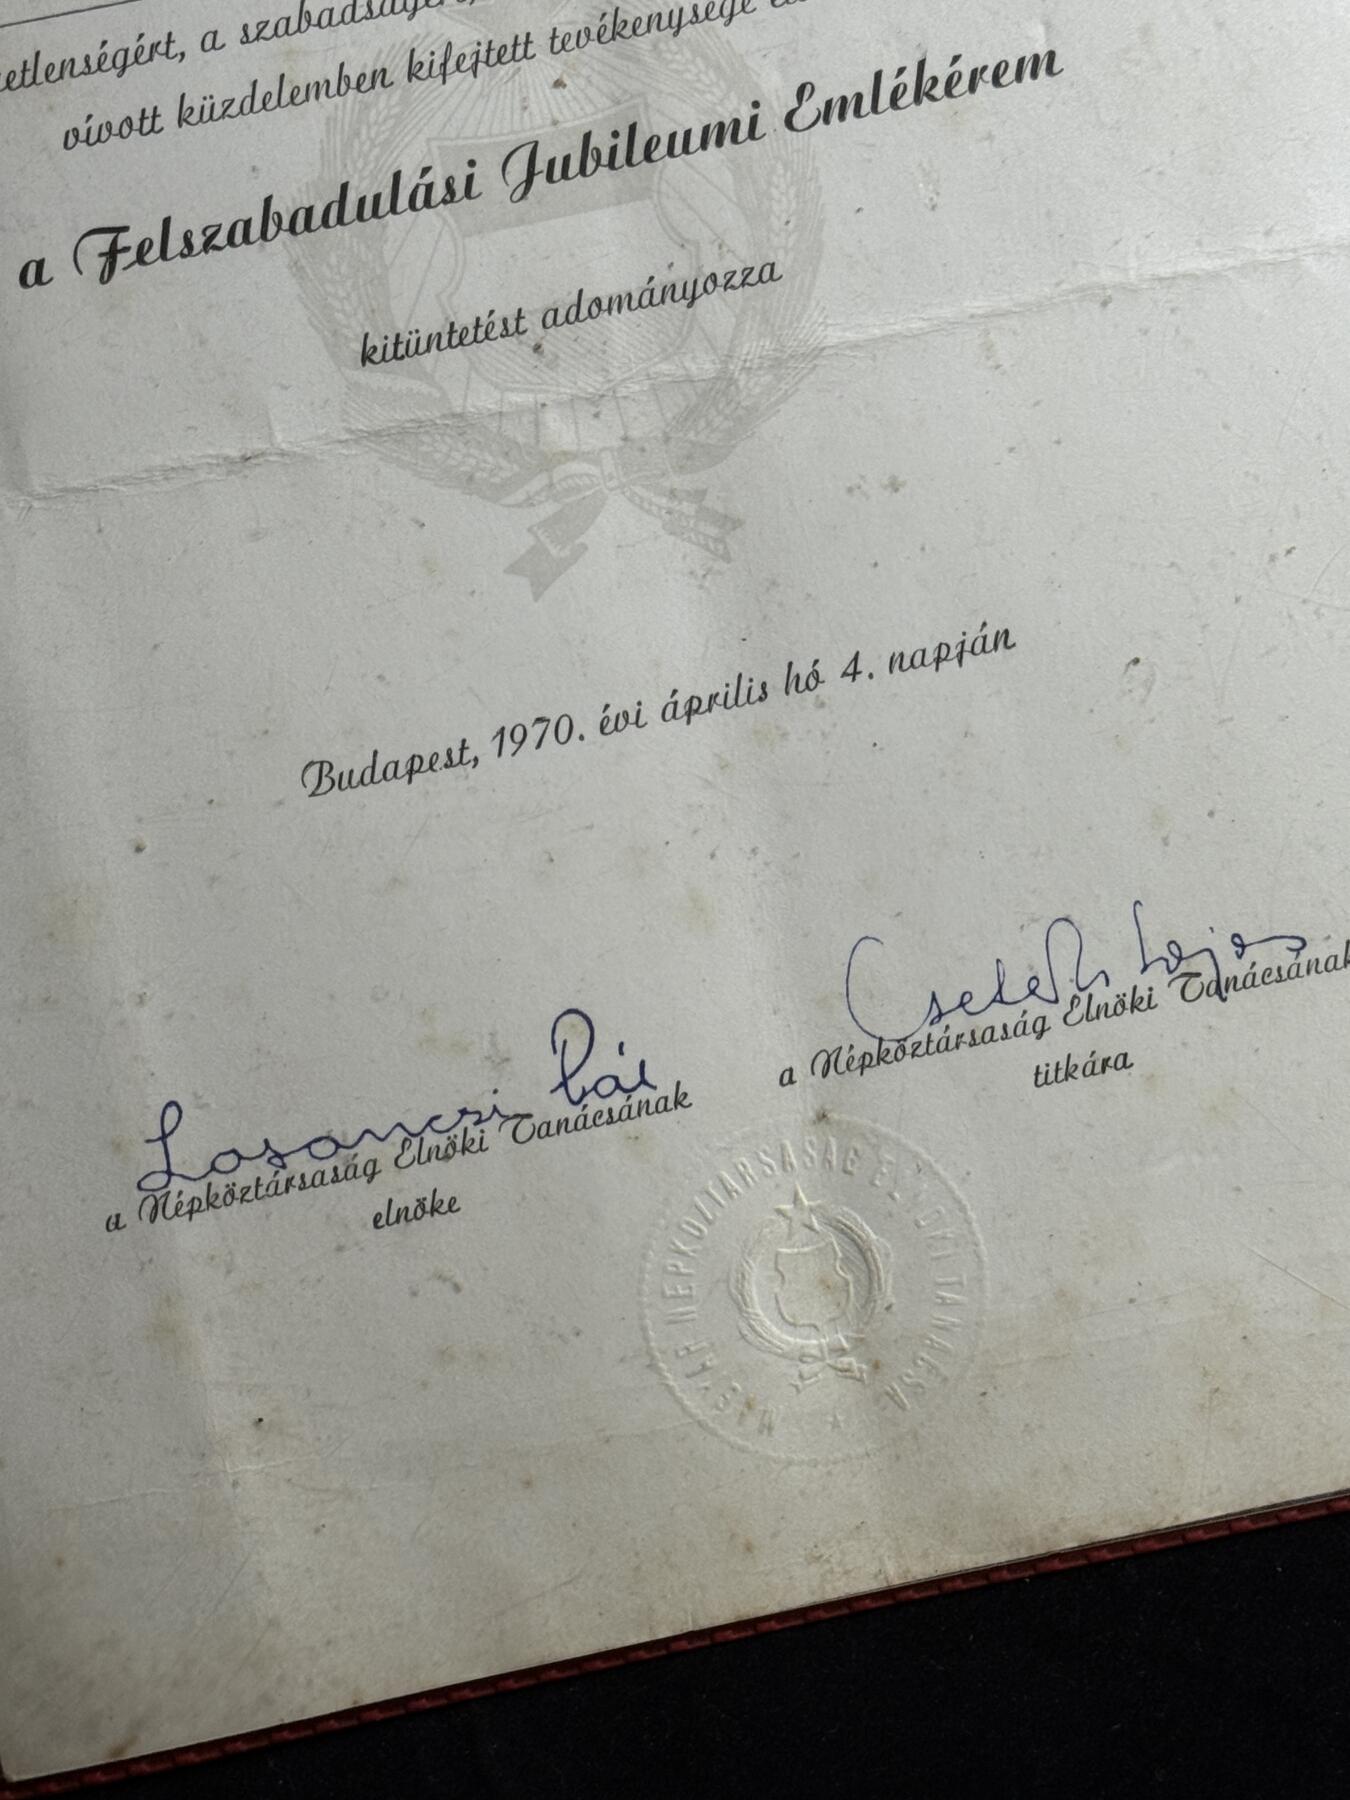 a szabadságért,
vívott küzdelemben kifejtett tevékenysége
a Felszabadulási Jubileumi Emlékérem
kitüntetést adományozza
Budapest, 1970. évi április hó 4. napján
Losonczi Pál
a Népköztársaság Elnöki Tanácsának
elnöke
Cseterki Lajos
a Népköztársaság Elnöki Tanácsának
titkára
MAGYAR NÉPKÖZTÁRSASÁG ELNÖKI TANÁCSA